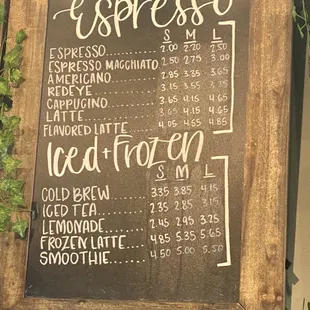 Espresso
S M L
ESPRESSO........... 2.00 2.20 2.50
ESPRESSO MACCHIATO 2.50 2.75 3.00
AMERICANO........... 2.85 3.35 3.65
REDEYE............. 3.15 3.55
CAPPUCINO.......... 3.65 4.15 4.65
LATTE............... 3.65 4.15 4.65
FLAVORED LATTE...... 4.05 4.55 4.85
Iced+Frozen
S M L
COLD BREW.......... 3.35 3.85 4.15
ICED TEA............ 2.35 2.85 3.15
LEMONADE.......... 2.45 2.95 3.25
FROZEN LATTE..... 4.85 5.35 5.65
SMOOTHIE......... 4.50 5.00 5.50